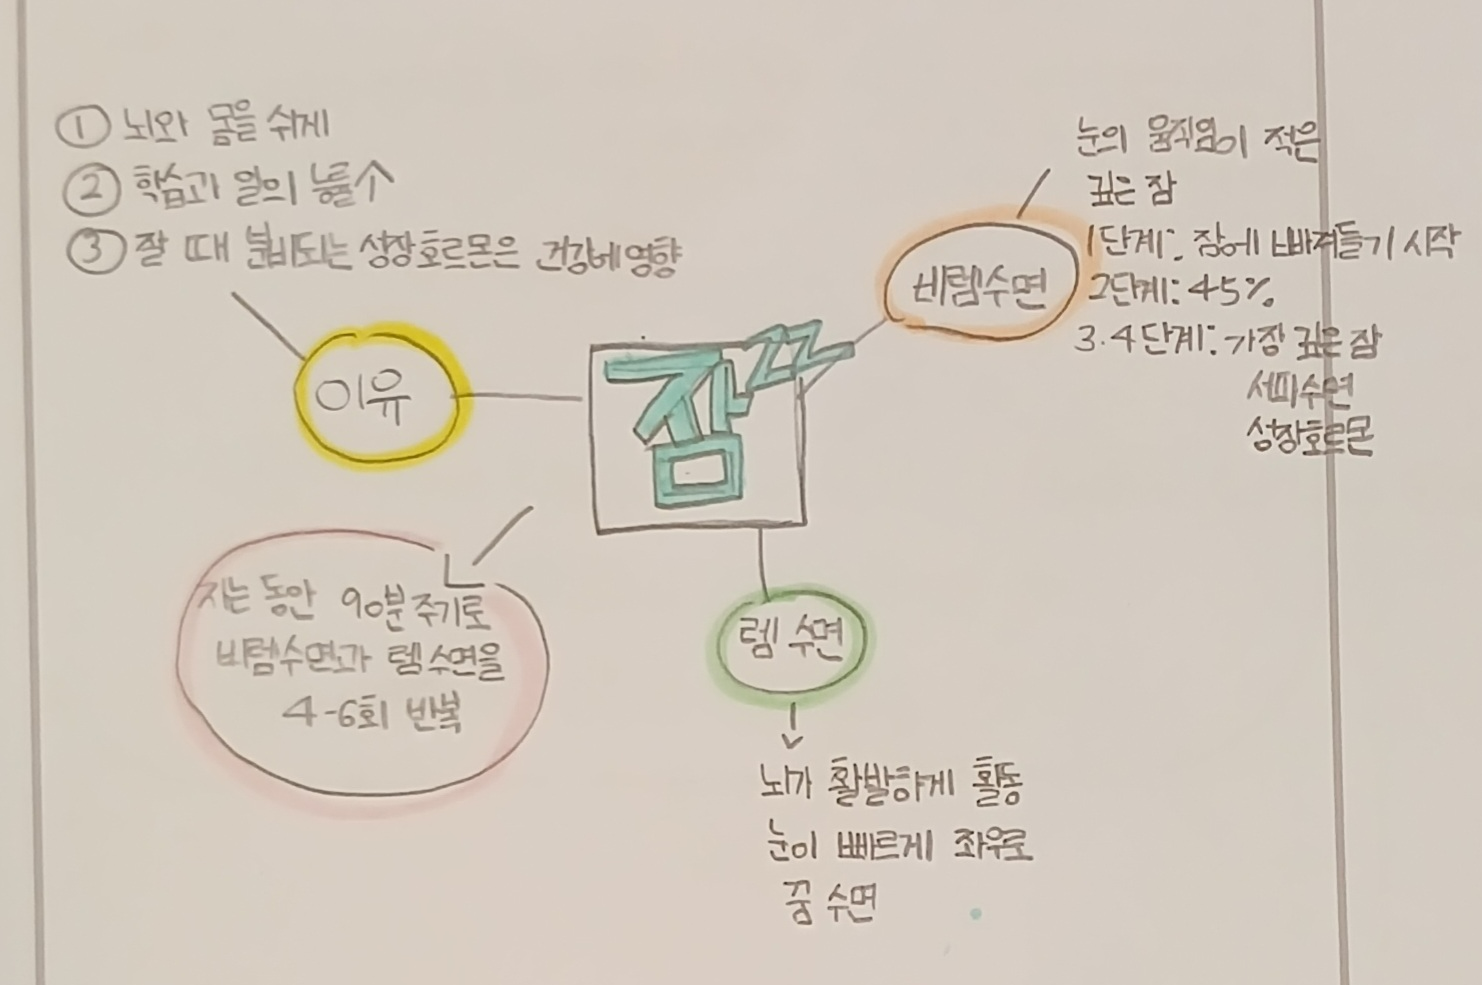 ① 뇌와 몸을 쉬게
② 학습과 일의 능률↑
③ 잘 때 분비되는 성장호르몬은 건강에 영향
이유
잠zz
비렘수면
눈의 움직임이 적은
깊은 잠
1단계: 잠에 빠져들기 시작
2단계: 45%
3.4단계: 가장 깊은 잠
서파수면
성장호르몬
자는 동안 90분 주기로
비렘수면과 렘수면을
4-6회 반복
렘수면
뇌가 활발하게 활동
눈이 빠르게 좌우로
꿈 수면